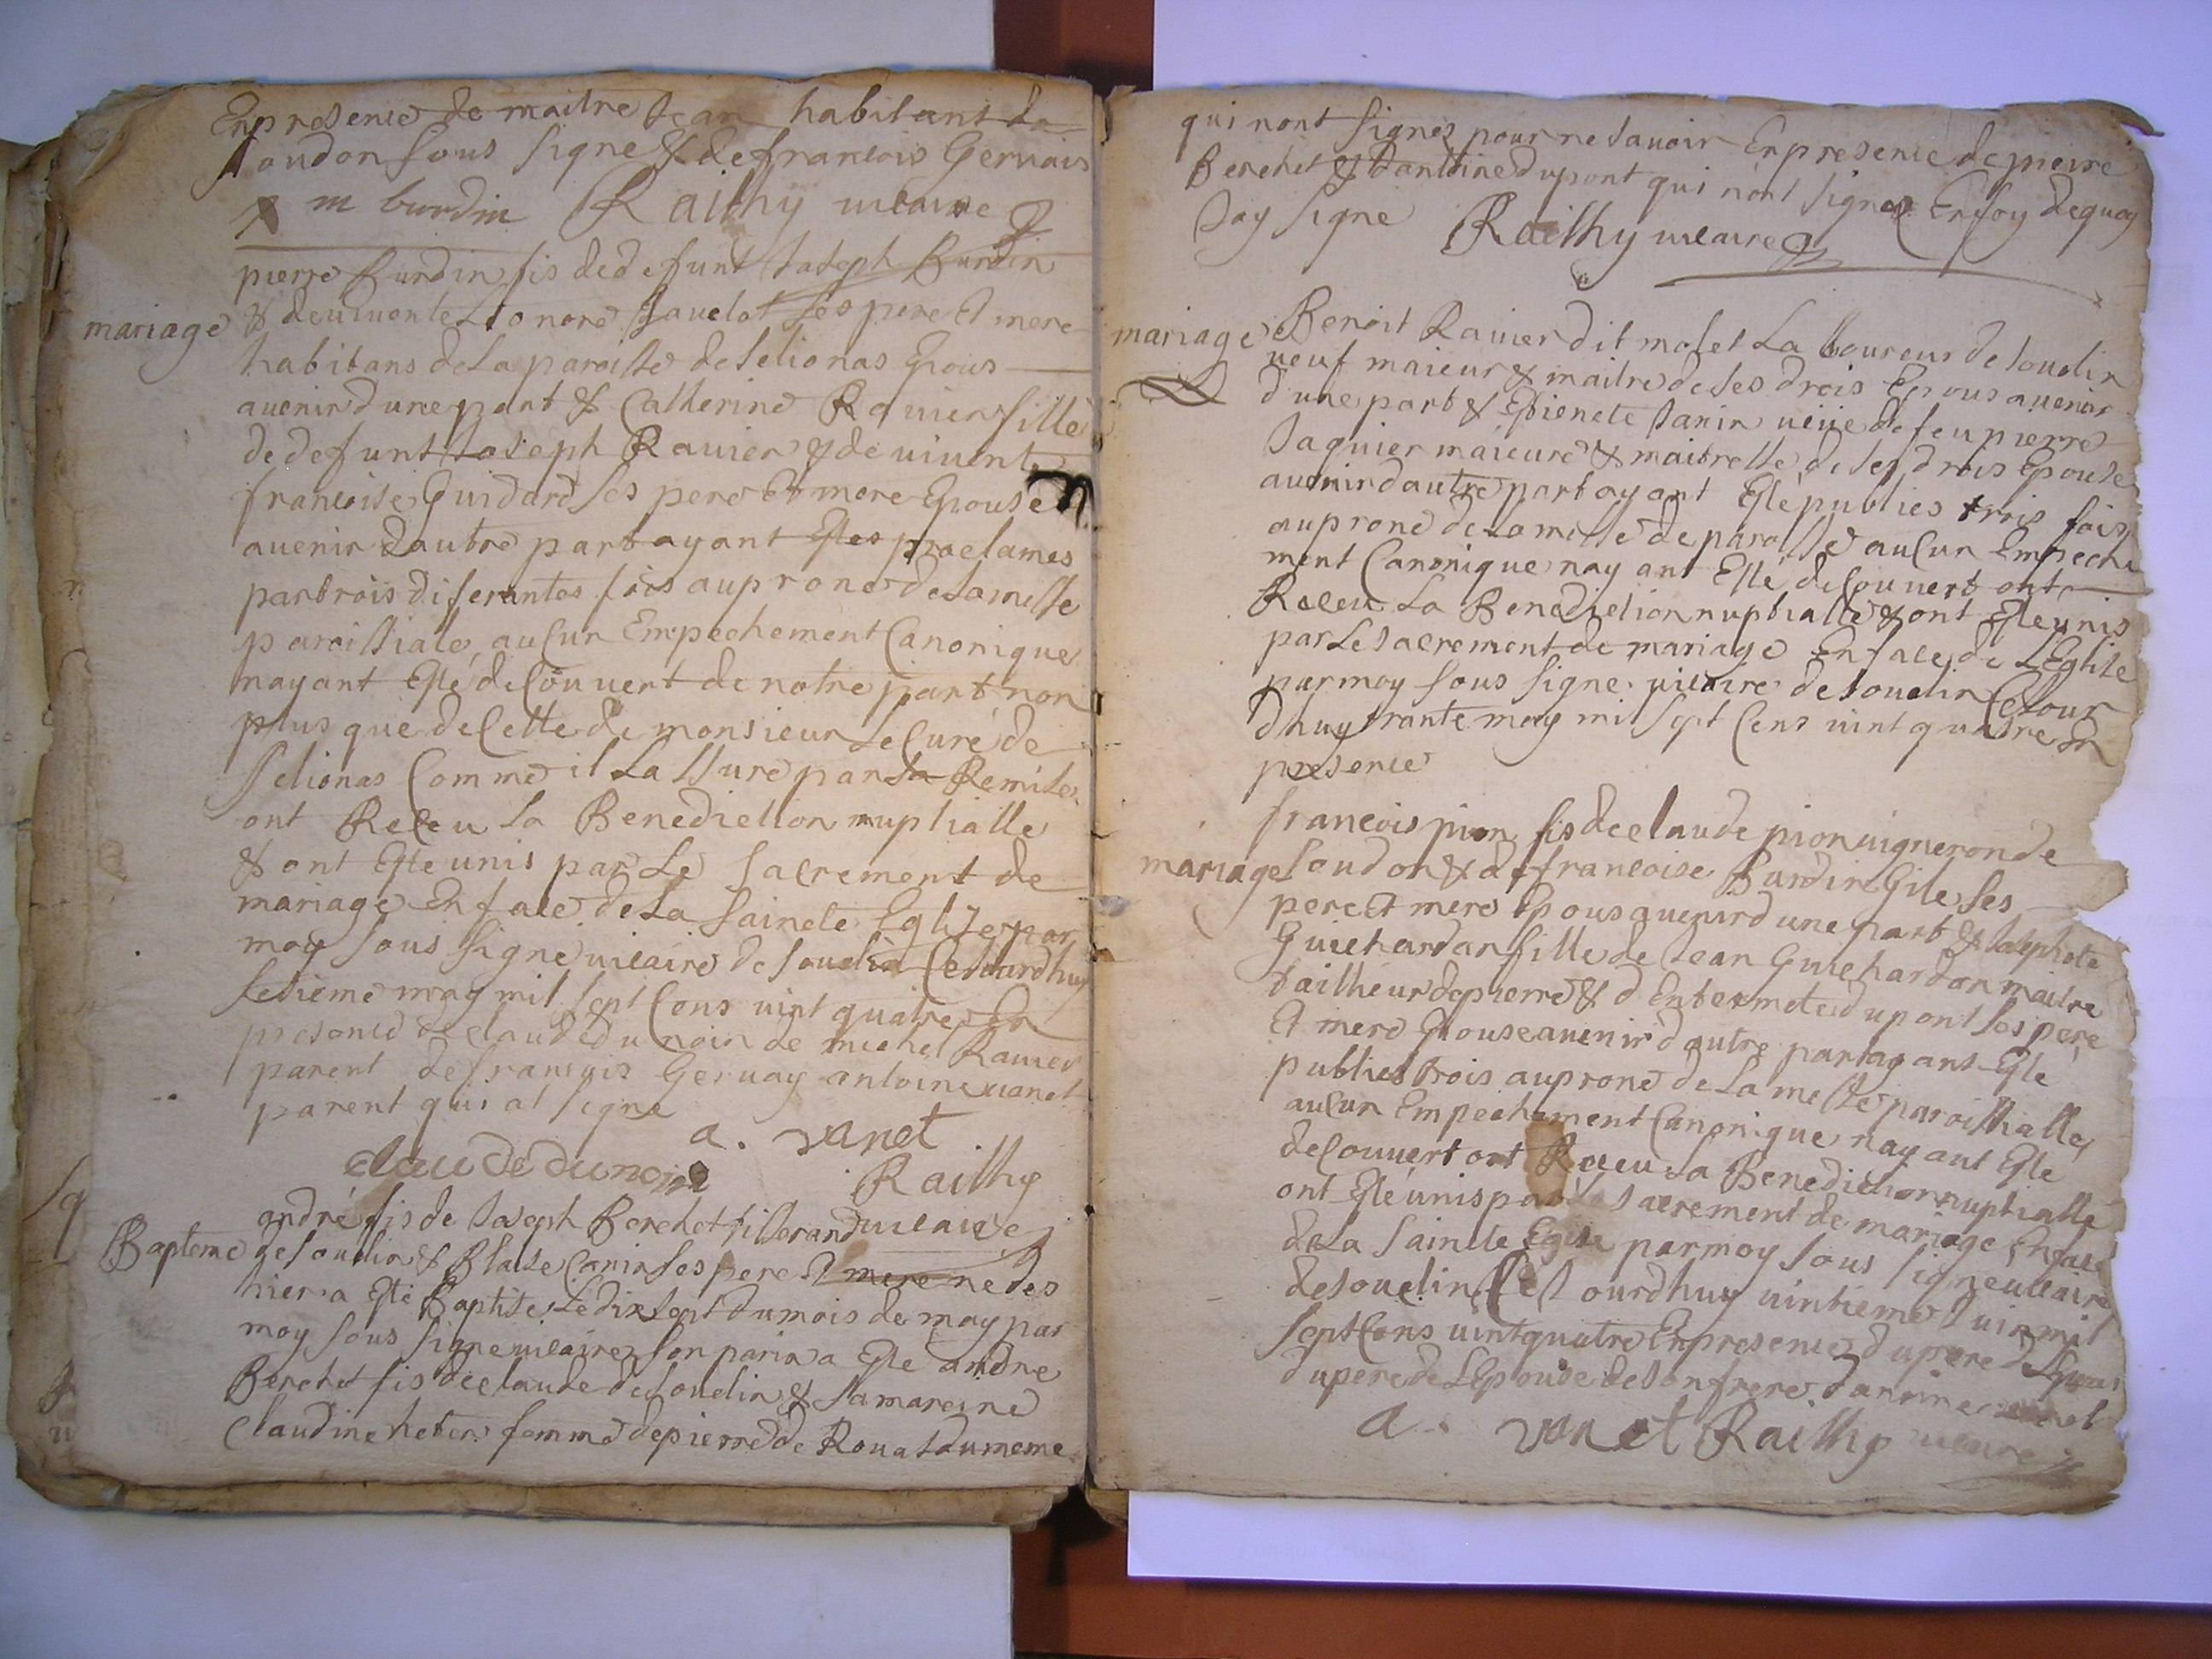 En presence de maitre Jean habitant de
soudon sous signé & de francois Gervais
m burdin Railhy vicaire
pierre Burdin fis de defunt Joseph Burdin
mariage & de vivente Leonore Javelot ses pere et mere
habitans de la paroisse de Selionas Epous
avenir d'une part & Catherine Ravier fille
de defunt Joseph Ravier & de vivente
francoise Guidard ses pere et mere Epouse
avenir dautre part ayant estes proclames
par trois diferentes fois au prone de la messe
paroissiale, aucun Empechement Canonique
nayant esté decouvert de notre part non
plus que de Cette de monsieur Le Curé de
selionas Comme il Lassure par sa Remise
ont Receu La Benediction nuptialle
& ont este unis par Le sacrement de
mariage En face de La saincte Eglize par
moy sous signé vicaire de souclin Cejourdhuy
sesieme may mil sept Cens vint quatre En
presence de claude dunoir de michel Ravier
parent de francois Gervay antoine vanet
parent qui at signe
a. vanet
claude dunoir Railhy
andré fis de Joseph Berchet tisserand vicaire
Bapteme de souclin & Blaise Canin ses pere et mere ne des
hier a esté Baptise Le dix sept du mois de may par
moy sous signe vicaire son parin a este andre
Berchet fis de claude de souclin & sa mareine
Claudine heter femme de pierre de Rouat du meme
qui nont signes pour ne savoir En presence de pierre
Berchet & dantoine dupont qui n'ont signes En foy de quoy
Jay signe Railhy vicaire
mariage Benoit Ravier dit molet La boureur de souclin
veuf maieur & maitre de ses drois Epous avenir
d'une part & Etienete Janin veuve de feu pierre
Jaquier maieure & maitresse de ses drois Epouse
avenir dautre part ayant Esté publies trois fois
au prone de La messe de paroisse aucun Empeche
ment Canonique nayant Esté decouvert ont
Receu La Benediction nuptialle & ont este unis
par Le sacrement de mariage En face de L'Eglise
par moy sous signe vicaire de souclin Cejour
dhuy trante may mil sept Cens vint quatre En
presence
francois pion fis de claude pion vigneron de
mariage soudon & de francoise Burdin Gile ses
pere et mere Epous avenir d'une part & Josephete
Guichardan fille de Jean Guichardan maitre
tailheur de pierre & d Entesmete dupont ses pere
et mere Epouse avenir d'autre part ayant Esté
publies trois au prone de La messe paroissialle,
aucun Empechement Canonique nayant Esté
decouvert ont Receu La Benediction nuptialle
ont esté unis par Le sacrement de mariage En face
de La saincte Eglise par moy sous signé vicaire
de souclin Ce Jourdhuy vintieme Juin mil
sept Cens vint quatre En presence du pere de L'Epous
du pere de L'Epouse de son frere d'antoine vanet
a. vanet Railhy vicaire